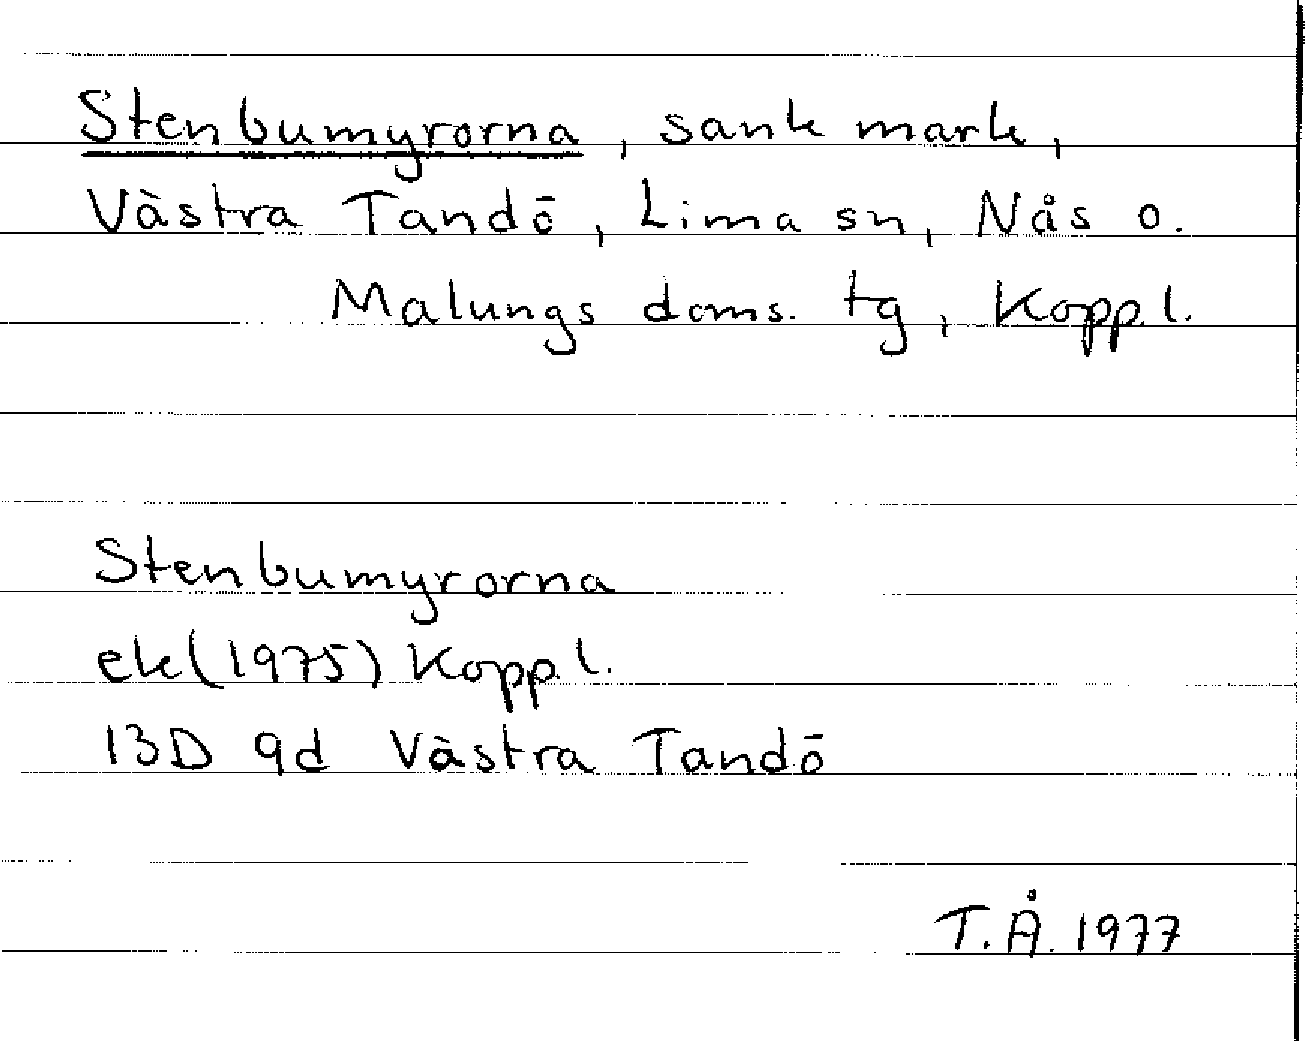 Stenbumyrorna, sank mark,
Västra Tandö, Lima sn, Nås o.
Malungs doms. tg, Kopp.l.
Stenbumyrorna
ek(1975) Kopp.l.
13D 9d Västra Tandö
T.Å. 1977